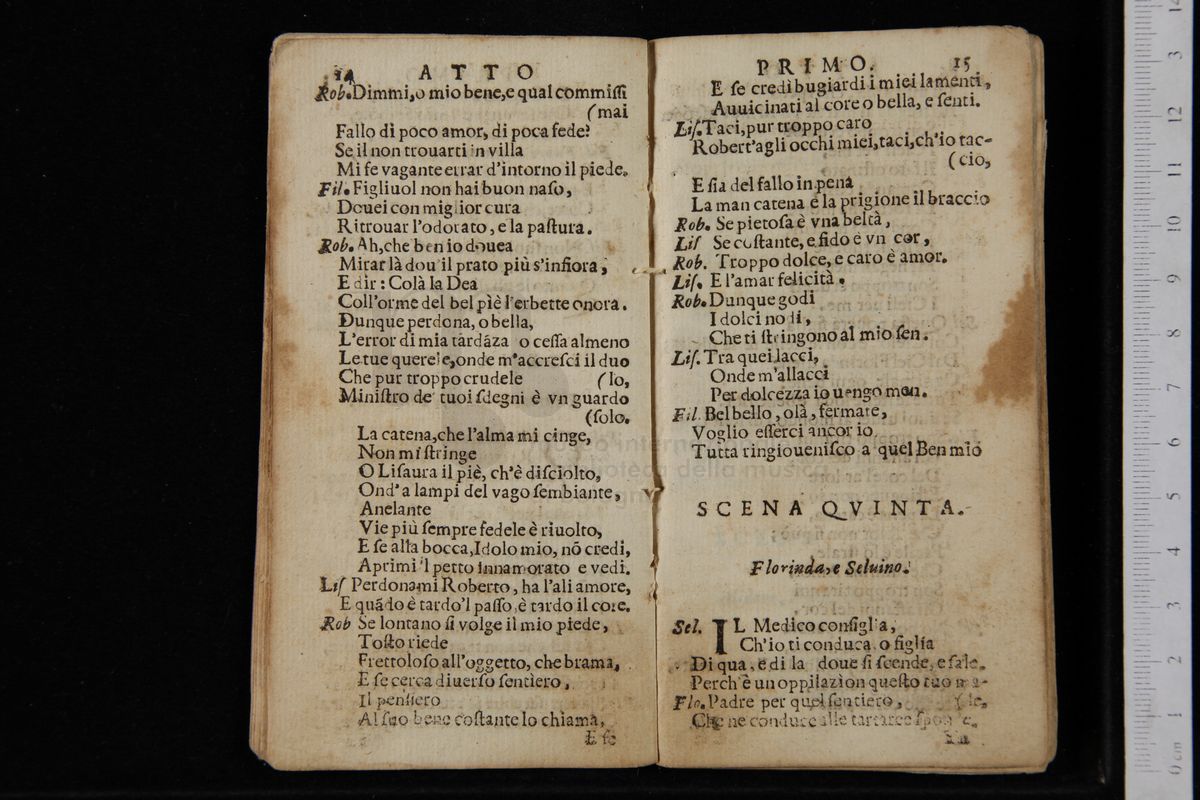 14 ATTO
Rob. Dimmi, o mio bene, e qual commiſſi
(mai
Fallo di poco amor, di poca fede?
Se il non trouarti in villa
Mi fe vagante errar d'intorno il piede.
Fil. Figliuol non hai buon naſo,
Douei con miglior cura
Ritrouar l'odorato, e la paſtura.
Rob. Ah, che ben io douea
Mirar là dou'il prato più s'infiora;
E dir: Colà la Dea
Coll'orme del bel piè l'erbette onora.
Dunque perdona, o bella,
L'error di mia tardāza o ceſſa almeno
Le tue querele, onde m'accreſci il duo
Che pur troppo crudele (lo,
Miniſtro de' tuoi ſdegni è vn guardo
(ſolo.
La catena, che l'alma mi cinge,
Non mi ſtringe
O Liſaura il piè, ch'è diſciolto,
Ond'a lampi del vago ſembiante,
Anelante
Vie più ſempre fedele è riuolto,
E ſe alla bocca, Idolo mio, nō credi,
Aprimi 'l petto innamorato e vedi.
Liſ Perdonami Roberto, ha l'ali amore,
E quādo è tardo'l paſſo, è tardo il core.
Rob Se lontano ſi volge il mio piede,
Toſto riede
Frettoloſo all'oggetto, che brama,
E ſe cerca diuerſo ſentiero,
Il penſiero
Al ſuo bene coſtante lo chiama,
E ſe
PRIMO. 15
E ſe credi bugiardi i miei lamenti,
Auuicinati al core o bella, e ſenti.
Liſ. Taci, pur troppo caro
Robert'agli occhi miei, taci, ch'io tac-
(cio,
E ſia del fallo in pena
La man catena e la prigione il braccio
Rob. Se pietoſa è vna beltà,
Liſ Se coſtante, e fido è vn cor,
Rob. Troppo dolce, e caro è amor.
Liſ. E l'amar felicità.
Rob. Dunque godi
I dolci nodi,
Che ti ſtringono al mio ſen.
Liſ. Tra quei lacci,
Onde m'allacci
Per dolcezza io uengo men.
Fil. Bel bello, olà, fermate,
Voglio eſſerci ancor io.
Tutta ringioueniſco a quel Ben mio
SCENA QVINTA.
Florinda, e Seluino.
Sel. IL Medico conſiglia,
Ch'io ti conduca o figlia
Di qua, e di la doue ſi ſcende, e ſale.
Perch'è un oppilazion queſto tuo ma-
Flo. Padre per quel ſentiero, (le.
Che ne conduce alle tartaree